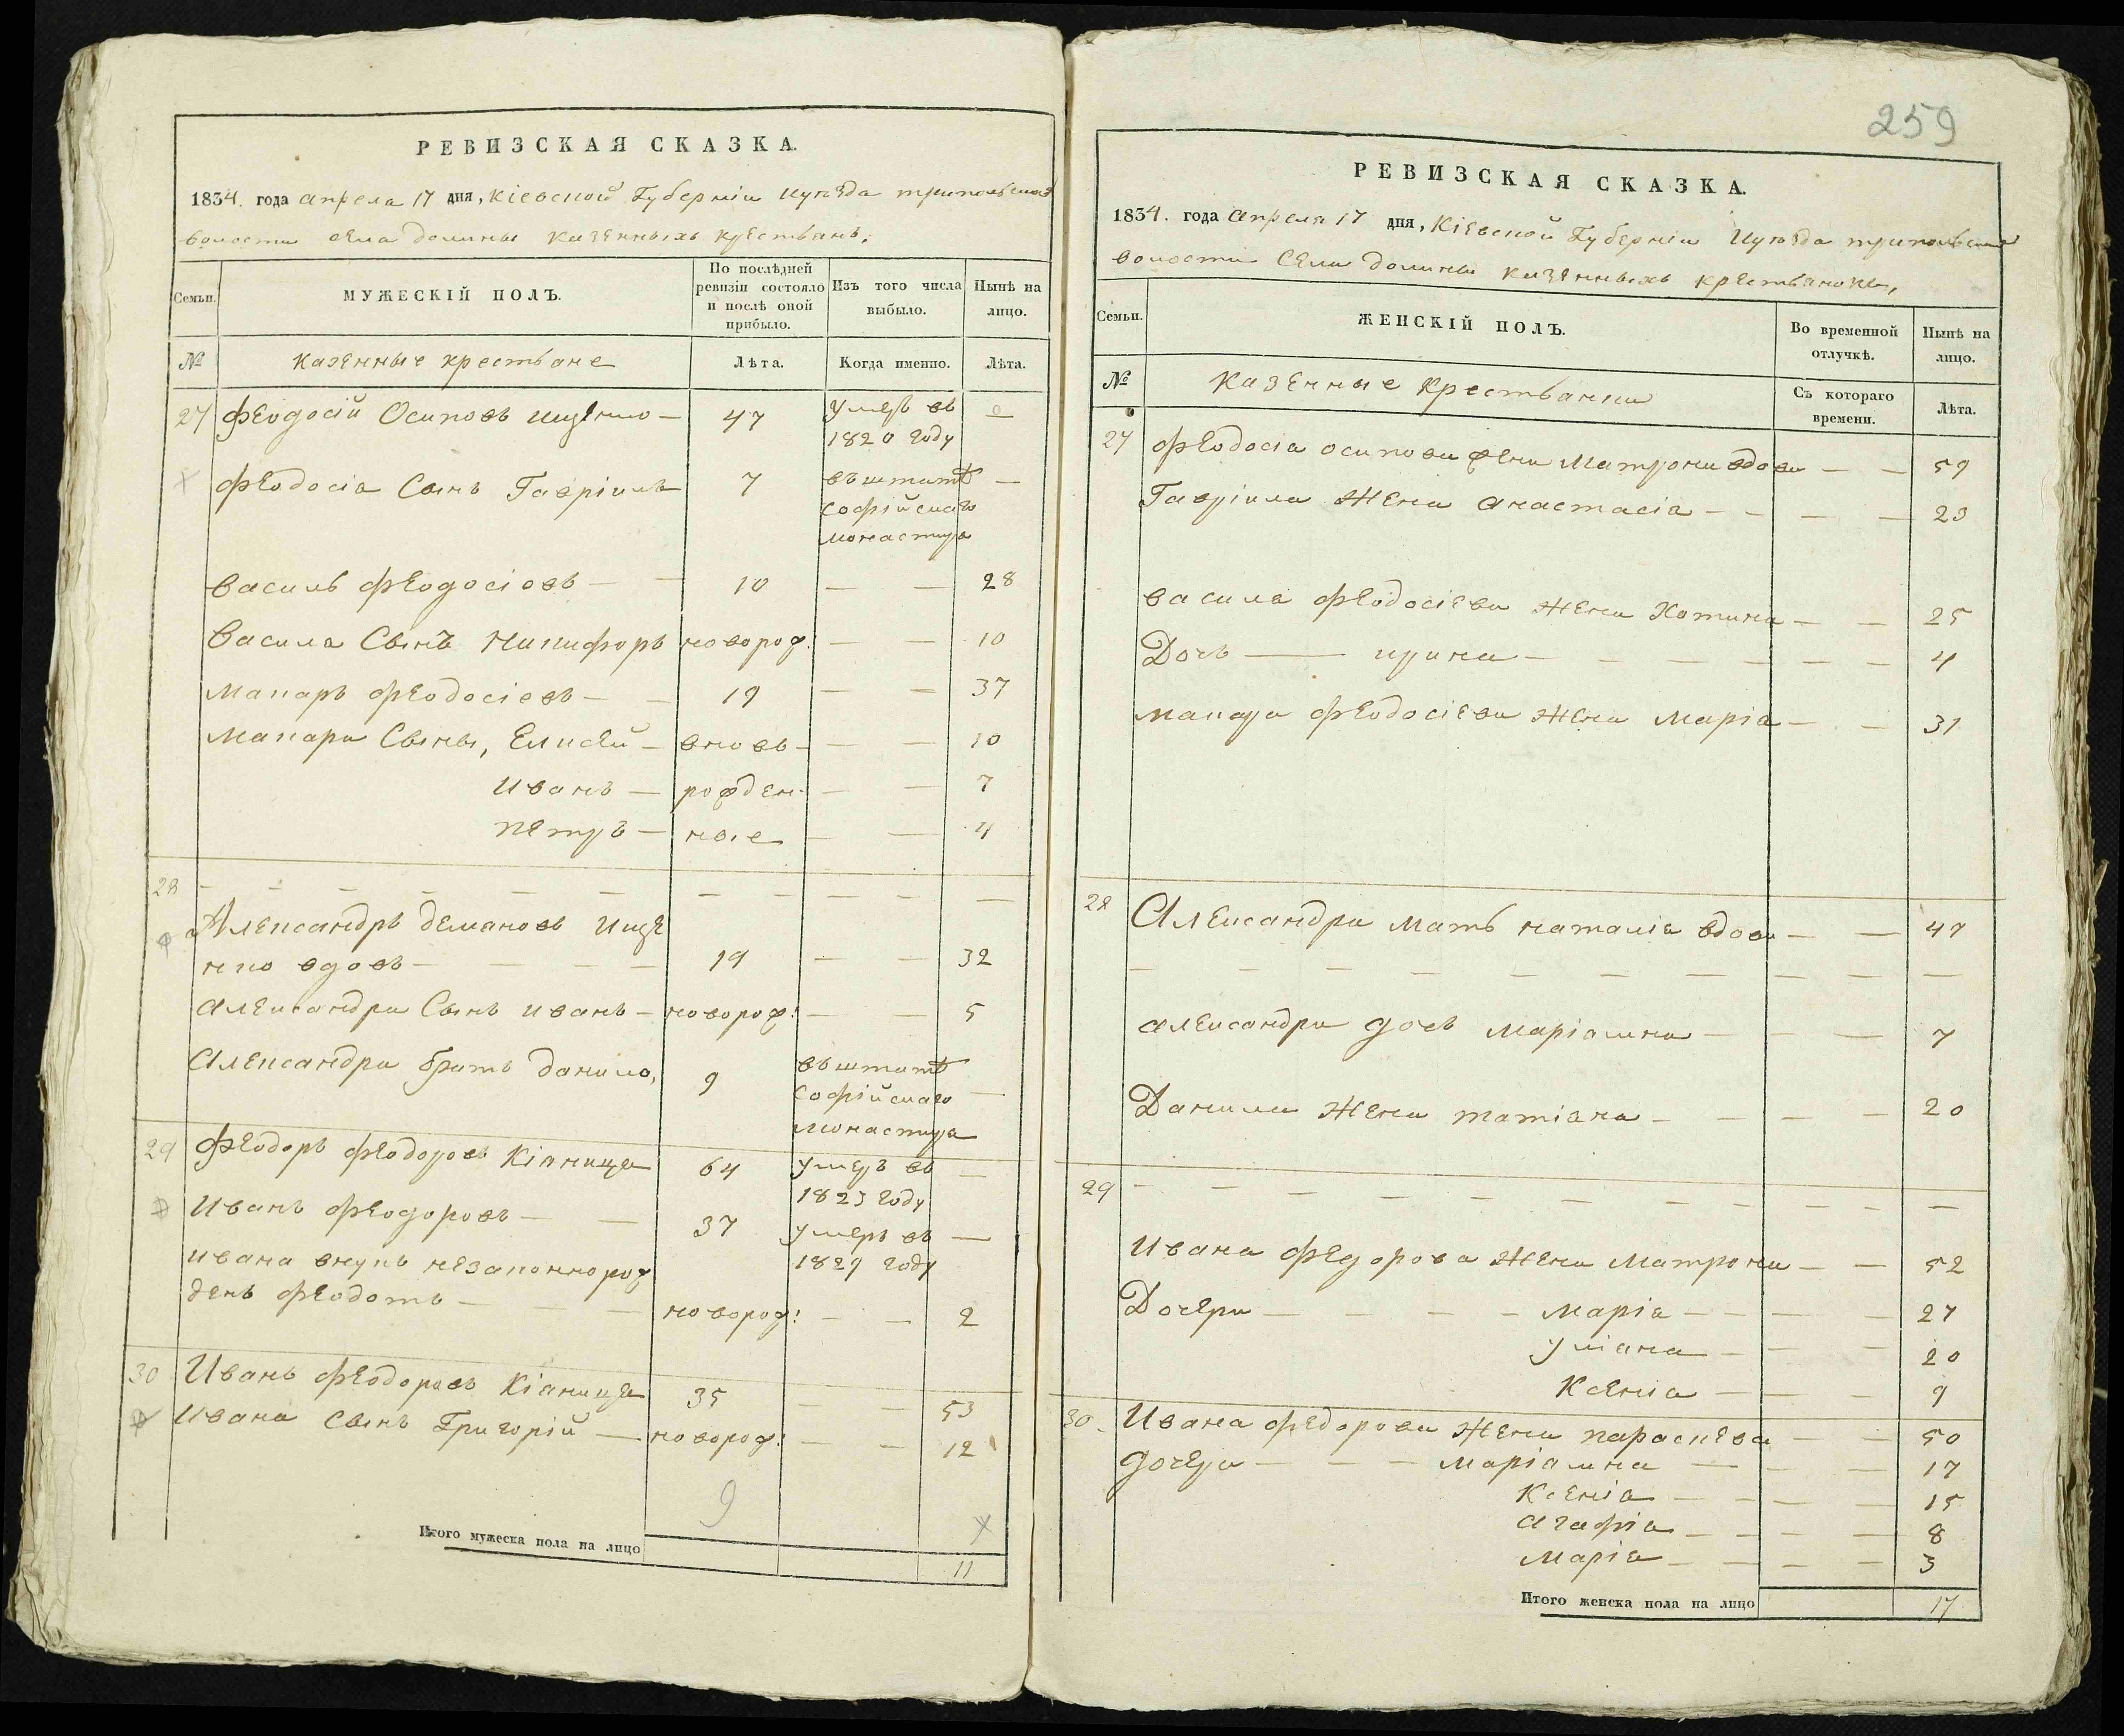 РЕВИЗСКАЯ СКАЗКА.
1834. года апреля 17 дня, Кіевской Губерніи и уезда трипольской
волости села долины казенныхъ крестьянъ,
Семьи.
МУЖЕСКІЙ ПОЛЪ.
По послѣдней ревизіи состояло и послѣ оной прибыло.
Изъ того числа выбыло.
Нынѣ на лицо.
№
казенные крестьяне
Лѣта.
Когда именно.
Лѣта.
27 Феодосій Осиповъ ищенко — 47 умеръ въ
1820 году
Феодосія Сынъ Гавріилъ 7 въ штатѣ —
Софійскаго
монастыря
Василь Феодосіовъ — — 10 — — 28
Васила Сынъ Никифоръ новорож: — — 10
Макаръ Феодосіевъ — — 19 — — 37
Макара Сыны, Елисей — вновь — — — 10
Иванъ — рожден- — — 7
петръ — ные — — 4
28 — — — — — — — — — — — —
Александръ демяновъ ище
нко вдовъ — — — — 19 — — 32
Александра Сынъ иванъ — новорож: — — 5
Александра братъ данило, 9 въ штатѣ
Софійскаго —
монастыря
29 Феодоръ Феодоровъ Кіяница 64 умеръ въ —
1823 году
Иванъ Феодоровъ — — 37 умеръ въ —
1829 году
ивана внукъ незаконнорож
денъ Феодотъ — — — новорож: — — 2
30 Иванъ Феодоровъ Кіяница 35 — — 53
Ивана Сынъ Григорій — новорож: — — 12
9
Итого мужеска пола на лицо
11
259
РЕВИЗСКАЯ СКАЗКА.
1834. года апреля 17 дня, Кіевской Губерніи и уезда трипольской
волости Села долины казенныхъ крестьянокъ,
Семьи.
ЖЕНСКІЙ ПОЛЪ.
Во временной отлучкѣ.
Нынѣ на лицо.
№
казенные крестьянки
Съ котораго времени.
Лѣта.
27 Феодосія осипова жена Матрона вдова — — 59
Гавріила Жена Анастасія — — — — 23
Васила Феодосіева Жена Хотина — — 25
Дочь — ирина — — — — — — — 4
макара Феодосіева Жена Марія — — 31
28 Александра Мать наталія вдова — — 47
— — — — — — — — — —
александра дочь Маріамна — — — 7
Данила Жена татіяна — — — — 20
29 — — — — — — — — — — —
Ивана Федорова Жена Матрона — — 52
Дочери — — — — Марія — — — — 27
Уліяна — — — 20
Ксенія — — — 9
30. Ивана Федорова Жена параскева — — 50
дочери — — — маріамна — — — 17
Ксенія — — — — 15
агафія — — — — 8
Марія — — — — 3
Итого женска пола на лицо
17